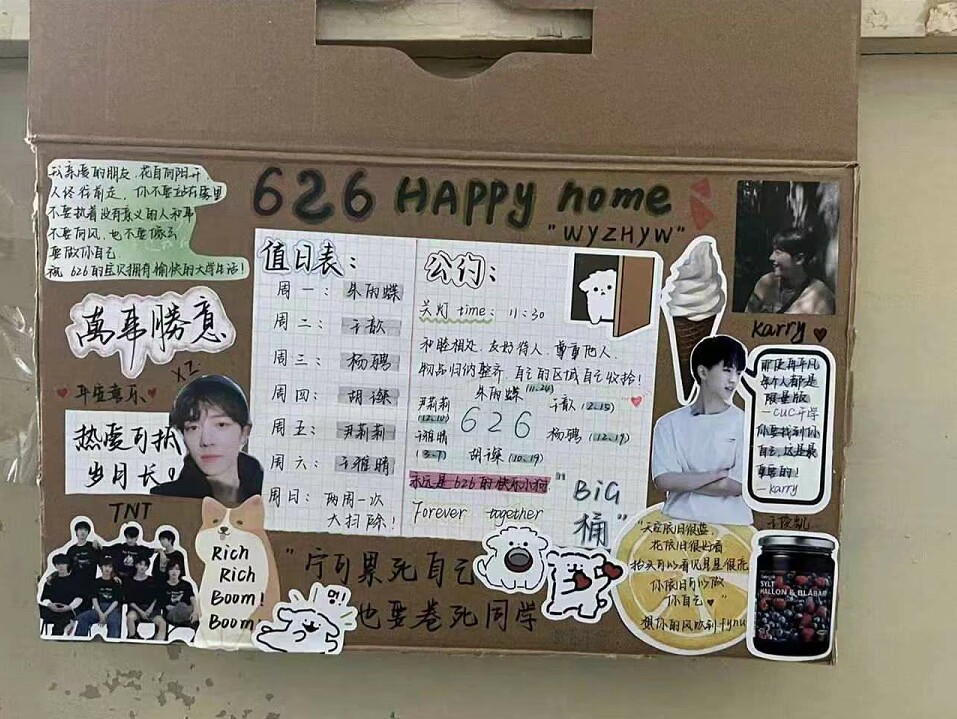 626 HAPPY home
"WYZHYW"
亲爱的朋友，花自向阳开
人终往前走，你不要站在雾里
不要执着没有意义的人和事
不要问风，也不要像云
要做你自己
祝 626的宝贝拥有愉快的大学生活！
萬事勝意
XZ
年度音乐
热爱可抵
岁月长！
TNT
Rich
Rich
Boom!
Boom!
值日表：
周一：朱雨蝶
周二：于歆
周三：杨聘
周四：胡
周五：尹莉莉
周六：于雅晴
周日：两周一次
大扫除！
公约：
关灯 time：11:30
和睦相处，友好待人，尊重他人，
物品归纳整齐，自己的区域自己收拾！
朱雨蝶 (11.24)
尹莉莉
(12.10)
于歆 (12.15)
626
于雅晴
(3.7)
杨聘 (12.19)
胡 (10.19)
永远是626的快乐小狗
Forever together
"BiG
桶"
"宁可累死自己
也要卷死同学
Karry
即使再平凡
每个人都是
限量版
—CUC
你要找到你
自己，这是最
重要的！
—karry
"天空依旧很蓝，
花依旧很好看
抬头可以看见星星很亮
你依旧可以做
你自己"
想你的风吹到fynu
SYLT
HALLON & BLÅBÄR